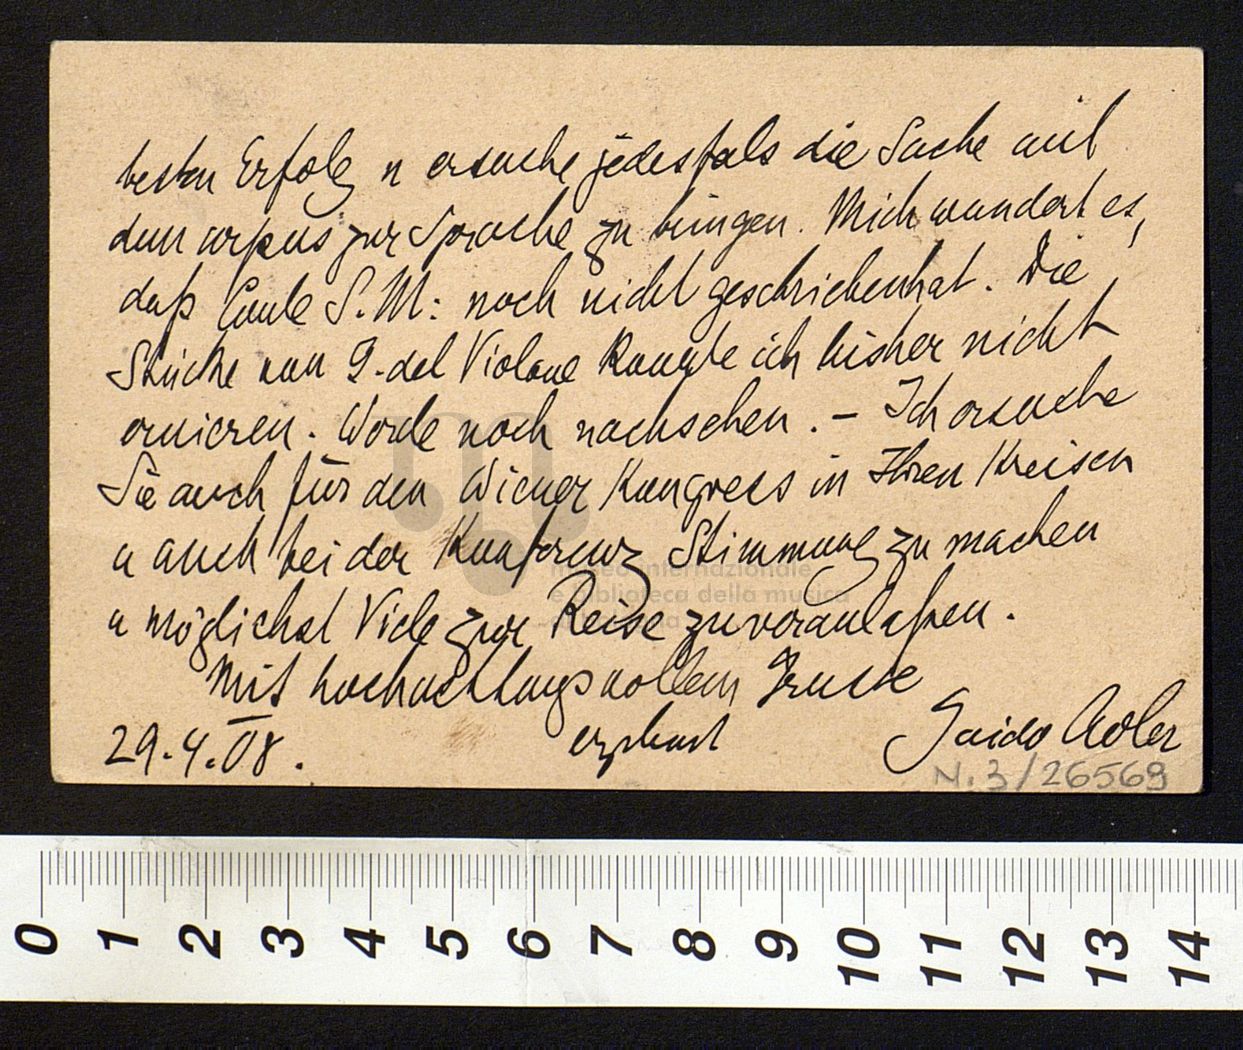 besten Erfolg u ersuche jedesfals die Sache mit
dem corpus zur Sprache zu bringen. Mich wundert es,
daß S. M: noch nicht geschrieben hat. Die
Stücke von G. del Violone konnte ich bisher nicht
eruieren. Werde noch nachsehen. – Ich ersuche
Sie auch für den Wiener Kongress in Ihren Kreisen
u auch bei der Konferenz Stimmung zu machen
u möglichst Viele zur Reise zu veranlaßen.
Mit hochachtungsvollem Grusse
29.4.08. ergebenst Guido Adler
N. 3/26569
museo internazionale
e biblioteca della musica
0 1 2 3 4 5 6 7 8 9 10 11 12 13 14